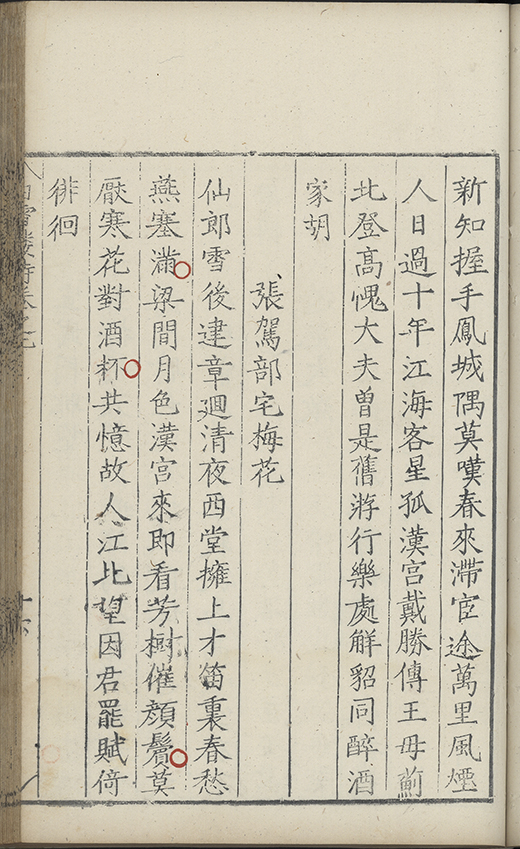 新知握手鳳城隅莫嘆春來滯宦途萬里風煙
人日過十年江海客星孤漢宮戴勝傳王母薊
北登高愧大夫曽是舊游行樂處解貂同醉酒
家胡
張駕部宅梅花
仙郎雪後建章廻清夜西堂擁上才笛裏春愁
燕塞滿梁間月色漢宮來即看芳樹催顔鬢莫
厭寒花對酒杯共憶故人江北望因君罷賦倚
徘徊